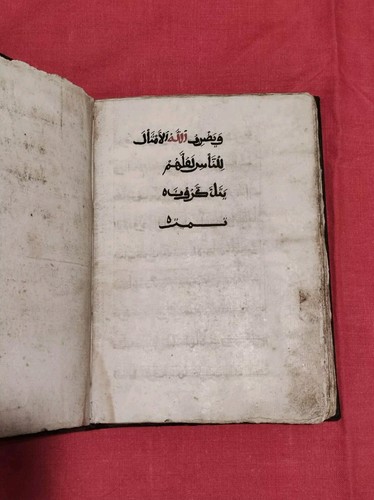 وَيَضْرِبُ اللَّهُ الْأَمْثَالَ
لِلنَّاسِ لَعَلَّهُمْ
يَتَذَكَّرُونَ ه
تمت ه